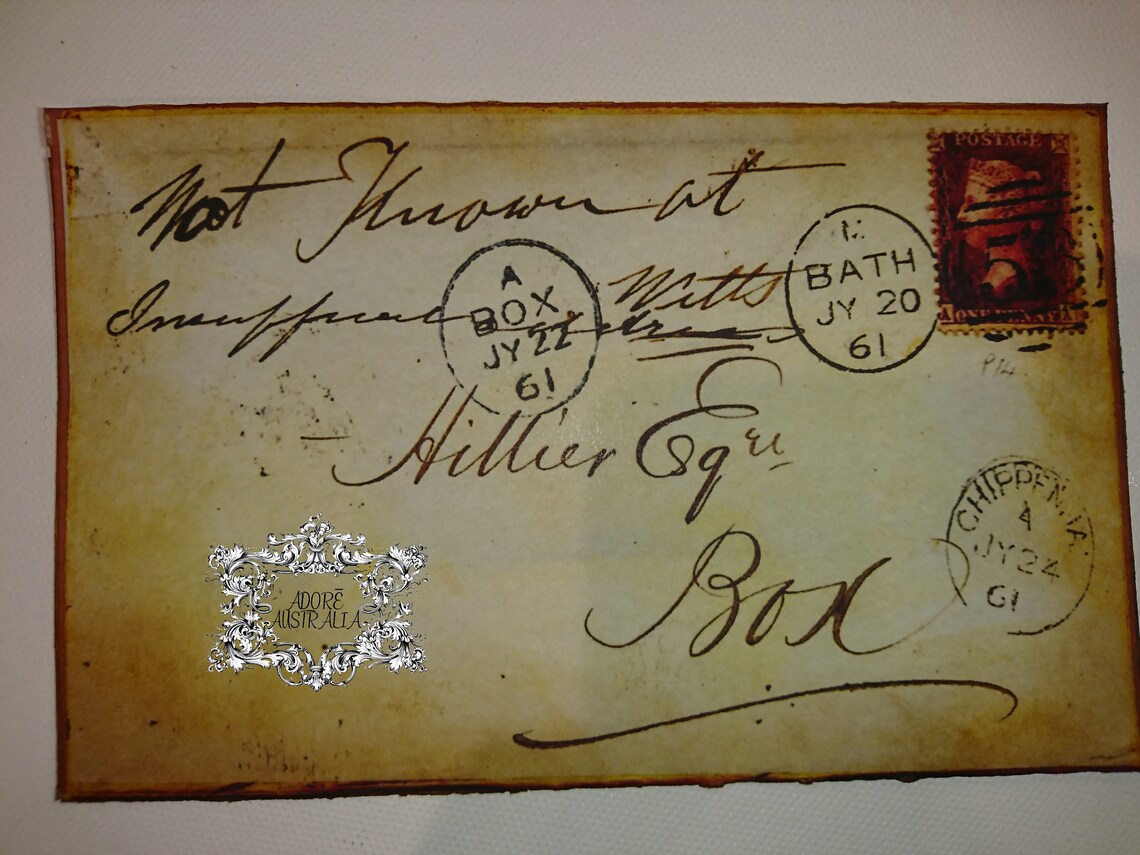 POSTAGE
Not Known at
Wilts
M
BATH
JY 20
61
A
BOX
JY 22
61
5
ONE PENNY
A
P14
Hillier Esqre
CHIPPENHAM
A
JY 24
61
Box
ADORĒ
AUSTRALIA